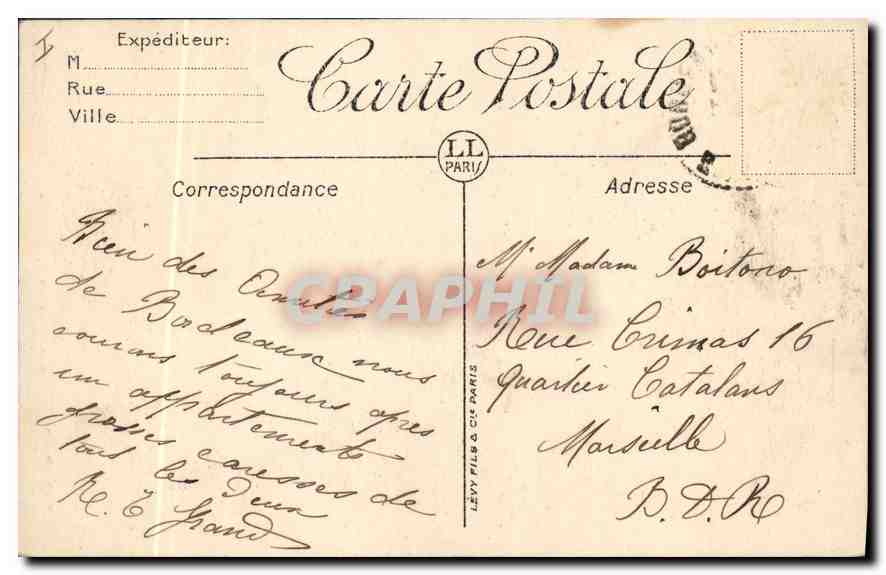 Expéditeur:
M
Rue
Ville
Carte Postale
LL
PARIS
Correspondance
Adresse
Bien des Amitiés
de Bordeaux nous
courons toujours apres
un appartements
grosses caresses de
tous les Deux
R. E Grand
Mr Madame Boitono
Rue Crimas 16
Quartier Catalans
Marseille
B. D. R
LEVY FILS & Cie PARIS
CPAPHIL